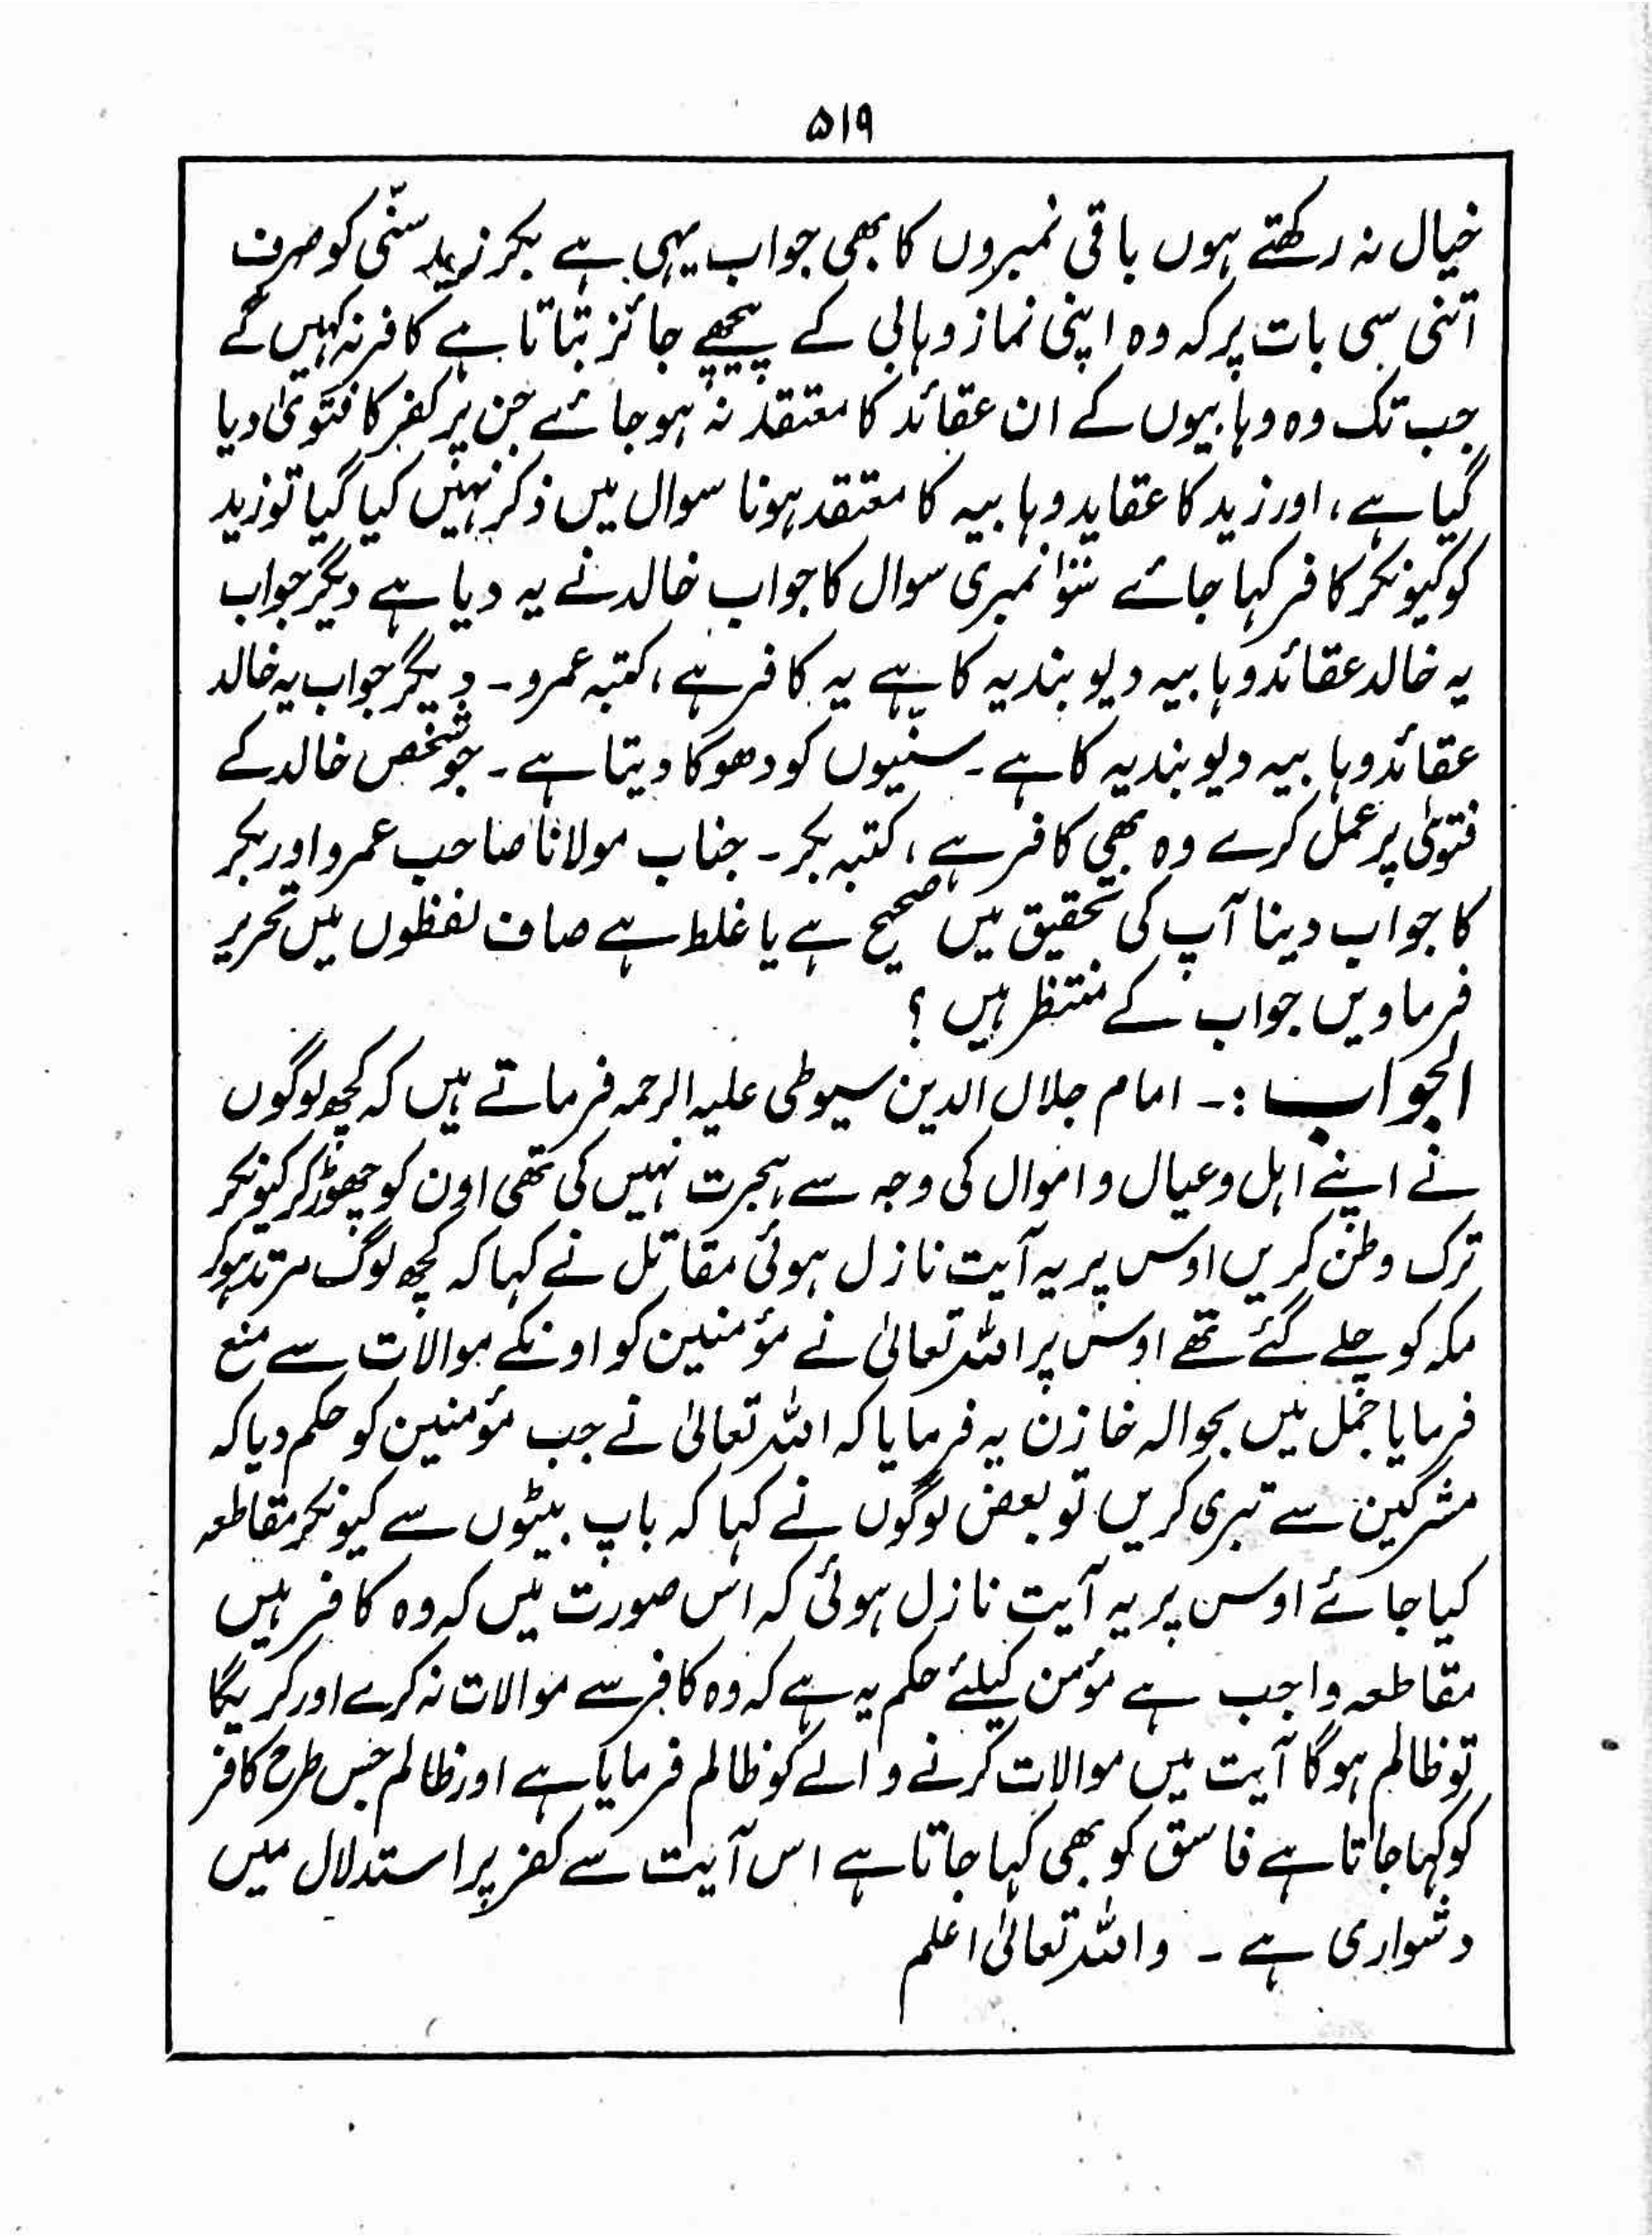 ۵۱۹
خیال نہ رکھتے ہوں باقی نمبروں کا بھی جواب یہی ہے بکر زید سنّی کو صرف
اتنی سی بات پر کہ وہ اپنی نماز وہابی کے پیچھے جائز بتاتا ہے کافر نہ کہیں گے
جب تک وہ وہابیوں کے ان عقائد کا معتقد نہ ہو جائے جن پر کفر کا فتویٰ دیا
گیا ہے، اور زید کا عقاید وہابیہ کا معتقد ہونا سوال میں ذکر نہیں کیا گیا تو زید
کو کیونکر کافر کہا جائے نمبری سوال کا جواب خالد نے یہ دیا ہے دیگر جواب
یہ خالد عقائد وہابیہ دیوبندیہ کا ہے یہ کافر ہے، کتبہ عمرو۔ دیگر جواب یہ خالد
عقائد وہابیہ دیوبندیہ کا ہے۔ سنّیوں کو دھوکا دیتا ہے۔ جو شخص خالد کے
فتویٰ پر عمل کرے وہ بھی کافر ہے، کتبہ بکر۔ جناب مولانا صاحب عمرو اور بکر
کا جواب دینا آپ کی تحقیق میں صحیح ہے یا غلط ہے صاف لفظوں میں تحریر
فرماویں جواب کے منتظر ہیں؟
الجواب :۔ امام جلال الدین سیوطی علیہ الرحمہ فرماتے ہیں کہ کچھ لوگوں
نے اپنے اہل و عیال و اموال کی وجہ سے ہجرت نہیں کی تھی اون کو چھوڑ کر کیونکر
ترک وطن کریں اوس پر یہ آیت نازل ہوئی مقاتل نے کہا کہ کچھ لوگ مرتد ہو کر
مکہ کو چلے گئے تھے اوس پر اللہ تعالیٰ نے مؤمنین کو اونکے موالات سے منع
فرمایا جمل میں بحوالہ خازن یہ فرمایا کہ اللہ تعالیٰ نے جب مؤمنین کو حکم دیا کہ
مشرکین سے تبری کریں تو بعض لوگوں نے کہا کہ باپ بیٹوں سے کیونکر مقاطعہ
کیا جائے اوس پر یہ آیت نازل ہوئی کہ اس صورت میں کہ وہ کافر ہیں
مقاطعہ واجب ہے مؤمن کیلئے حکم یہ ہے کہ وہ کافر سے موالات نہ کرے اور کریگا
تو ظالم ہوگا آیت میں موالات کرنے والے کو ظالم فرمایا ہے اور ظالم جس طرح کافر
کو کہا جاتا ہے فاسق کو بھی کہا جاتا ہے اس آیت سے کفر پر استدلال میں
دشواری ہے ۔ واللہ تعالیٰ اعلم